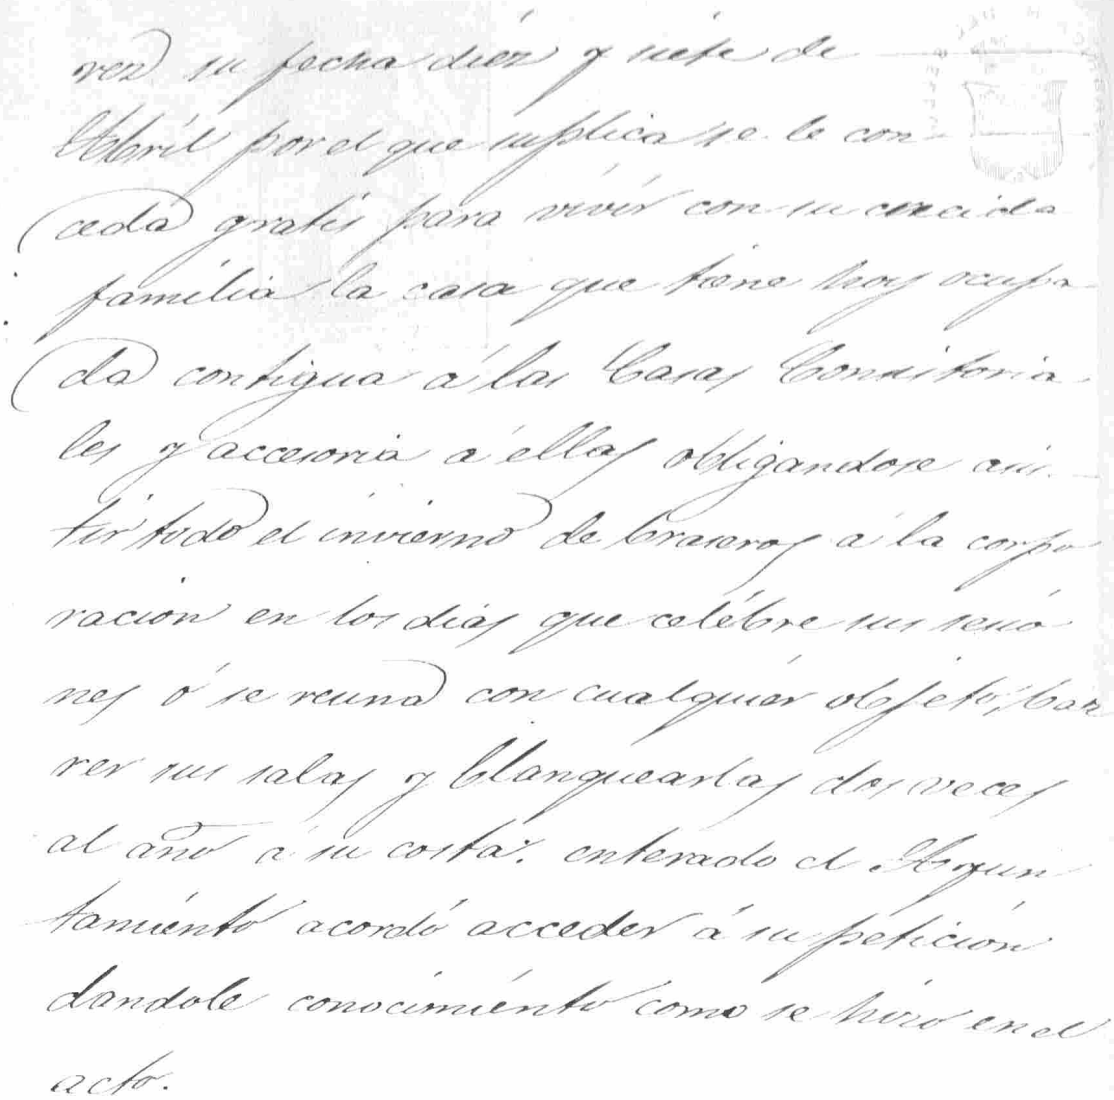 rez su fecha diéz y siete de
Abril por el que suplica se le con
ceda gratis para vivir con su crecida
família la casa que tiene hoy ocupa
da contigua á las Casas Consistoria
les y accesoria á ellas obligandose asis
tir todo el invierno de braseros á la corpo
ración en los días que celébre sus sesio
nes ó se reuna con cualquiér objeto, bar
rer sus salas y blanquearlas dos veces
al año á su costa: enterado el Ayun
tamiénto acordó acceder á su petición
dandole conocimiénto como se hizo en el
acto.